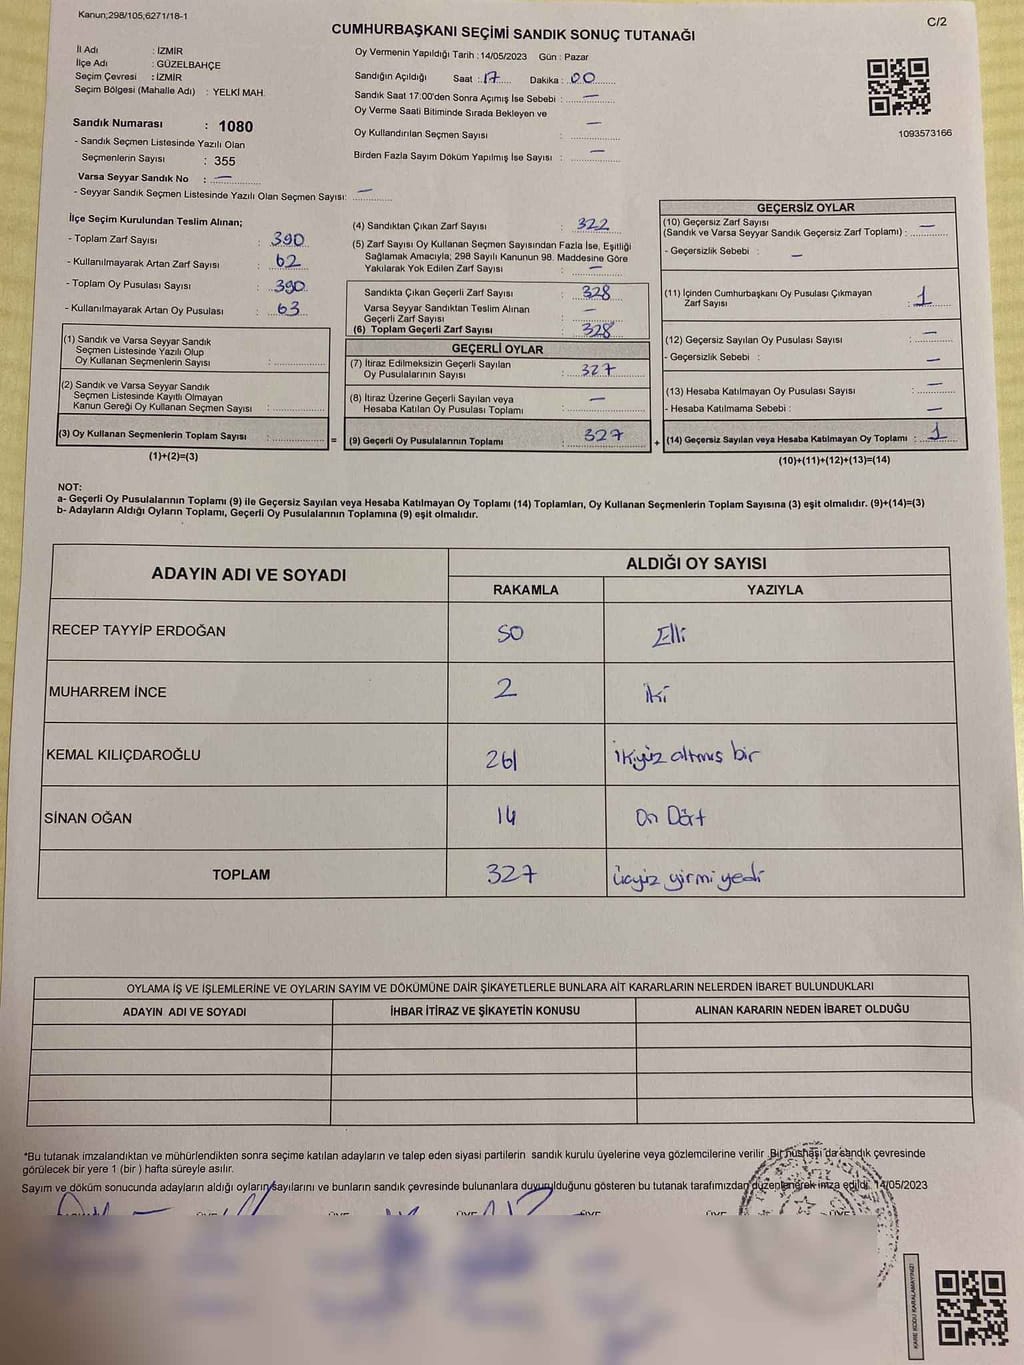 Kanun;298/105,6271/18-1
C/2
CUMHURBAŞKANI SEÇİMİ SANDIK SONUÇ TUTANAĞI
İl Adı : İZMİR
İlçe Adı : GÜZELBAHÇE
Seçim Çevresi : İZMİR
Seçim Bölgesi (Mahalle Adı) : YELKİ MAH.
Sandık Numarası : 1080
- Sandık Seçmen Listesinde Yazılı Olan
Seçmenlerin Sayısı : 355
Varsa Seyyar Sandık No : —
- Seyyar Sandık Seçmen Listesinde Yazılı Olan Seçmen Sayısı: —
Oy Vermenin Yapıldığı Tarih : 14/05/2023 Gün : Pazar
Sandığın Açıldığı Saat : 17 Dakika : 00
Sandık Saat 17:00'den Sonra Açımış İse Sebebi : —
Oy Verme Saati Bitiminde Sırada Bekleyen ve
Oy Kullandırılan Seçmen Sayısı : —
Birden Fazla Sayım Döküm Yapılmış İse Sayısı : —
1093573166
İlçe Seçim Kurulundan Teslim Alınan;
- Toplam Zarf Sayısı : 390
- Kullanılmayarak Artan Zarf Sayısı : 62
- Toplam Oy Pusulası Sayısı : 390
- Kullanılmayarak Artan Oy Pusulası : 63
(1) Sandık ve Varsa Seyyar Sandık
Seçmen Listesinde Yazılı Olup
Oy Kullanan Seçmenlerin Sayısı :
(2) Sandık ve Varsa Seyyar Sandık
Seçmen Listesinde Kayıtlı Olmayan
Kanun Gereği Oy Kullanan Seçmen Sayısı :
(3) Oy Kullanan Seçmenlerin Toplam Sayısı :
(1)+(2)=(3)
(4) Sandıktan Çıkan Zarf Sayısı : 322
(5) Zarf Sayısı Oy Kullanan Seçmen Sayısından Fazla İse, Eşitliği
Sağlamak Amacıyla; 298 Sayılı Kanunun 98. Maddesine Göre
Yakılarak Yok Edilen Zarf Sayısı : —
Sandıkta Çıkan Geçerli Zarf Sayısı : 328
Varsa Seyyar Sandıktan Teslim Alınan
Geçerli Zarf Sayısı : —
(6) Toplam Geçerli Zarf Sayısı : 328
GEÇERLİ OYLAR
(7) İtiraz Edilmeksizin Geçerli Sayılan
Oy Pusulalarının Sayısı : 327
(8) İtiraz Üzerine Geçerli Sayılan veya
Hesaba Katılan Oy Pusulası Toplamı : —
= (9) Geçerli Oy Pusulalarının Toplamı : 327
GEÇERSİZ OYLAR
(10) Geçersiz Zarf Sayısı
(Sandık ve Varsa Seyyar Sandık Geçersiz Zarf Toplamı) : —
- Geçersizlik Sebebi : —
(11) İçinden Cumhurbaşkanı Oy Pusulası Çıkmayan
Zarf Sayısı : 1
(12) Geçersiz Sayılan Oy Pusulası Sayısı : —
- Geçersizlik Sebebi : —
(13) Hesaba Katılmayan Oy Pusulası Sayısı : —
- Hesaba Katılmama Sebebi : —
+ (14) Geçersiz Sayılan veya Hesaba Katılmayan Oy Toplamı : 1
(10)+(11)+(12)+(13)=(14)
NOT:
a- Geçerli Oy Pusulalarının Toplamı (9) ile Geçersiz Sayılan veya Hesaba Katılmayan Oy Toplamı (14) Toplamları, Oy Kullanan Seçmenlerin Toplam Sayısına (3) eşit olmalıdır. (9)+(14)=(3)
b- Adayların Aldığı Oyların Toplamı, Geçerli Oy Pusulalarının Toplamına (9) eşit olmalıdır.
ADAYIN ADI VE SOYADI
ALDIĞI OY SAYISI
RAKAMLA YAZIYLA
RECEP TAYYİP ERDOĞAN 50 Elli
MUHARREM İNCE 2 iki
KEMAL KILIÇDAROĞLU 261 ikiyüz altmış bir
SİNAN OĞAN 14 On Dört
TOPLAM 327 üçyüz yirmi yedi
OYLAMA İŞ VE İŞLEMLERİNE VE OYLARIN SAYIM VE DÖKÜMÜNE DAİR ŞİKAYETLERLE BUNLARA AİT KARARLARIN NELERDEN İBARET BULUNDUKLARI
ADAYIN ADI VE SOYADI İHBAR İTİRAZ VE ŞİKAYETİN KONUSU ALINAN KARARIN NEDEN İBARET OLDUĞU
*Bu tutanak imzalandıktan ve mühürlendikten sonra seçime katılan adayların ve talep eden siyasi partilerin sandık kurulu üyelerine veya gözlemcilerine verilir .Bir nüshası da sandık çevresinde
görülecek bir yere 1 (bir ) hafta süreyle asılır.
Sayım ve döküm sonucunda adayların aldığı oyların sayılarını ve bunların sandık çevresinde bulunanlara duyurulduğunu gösteren bu tutanak tarafımızdan düzenlenerek imza edildi. 14/05/2023
KARE KODU KARALAMAYINIZ!